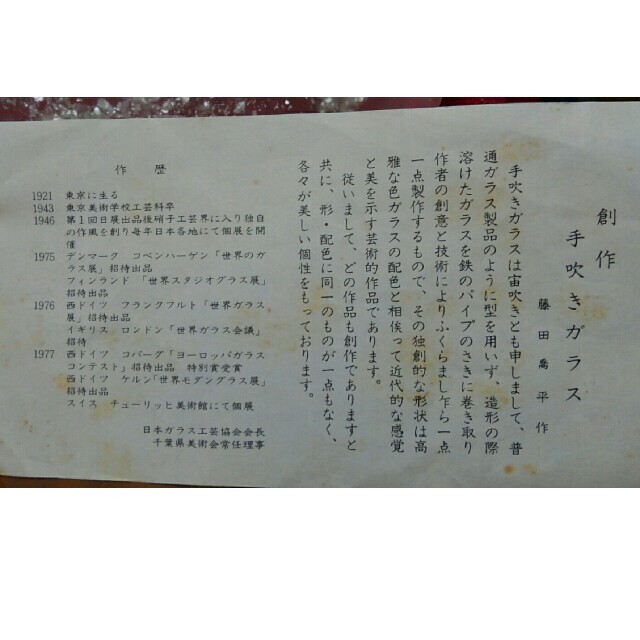 創作
手吹きガラス
藤田喬平作
手吹きガラスは宙吹きとも申しまして、普
通ガラス製品のように型を用いず、造形の際
溶けたガラスを鉄のパイプのさきに巻き取り
作者の創意と技術によりふくらまし乍ら一点
一点製作するもので、その独創的な形状は高
雅な色ガラスの配色と相俟って近代的な感覚
と美を示す芸術的作品であります。
従いまして、どの作品も創作でありますと
共に、形・配色に同一のものが一点もなく、
各々が美しい個性をもっております。
作歴
1921 東京に生る
1943 東京美術学校工芸科卒
1946 第1回日展出品後硝子工芸界に入り独自
の作風を創り毎年日本各地にて個展を開
催
1975 デンマーク コペンハーゲン「世界のガ
ラス展」招待出品
フィンランド 「世界スタジオグラス展」
招待出品
1976 西ドイツ フランクフルト「世界ガラス
展」招待出品
イギリス ロンドン「世界ガラス会議」
招待
1977 西ドイツ コバーグ「ヨーロッパガラス
コンテスト」招待出品 特別賞受賞
西ドイツ ケルン「世界モダングラス展」
招待出品
スイス チューリッヒ美術館にて個展
日本ガラス工芸協会会長
千葉県美術会常任理事